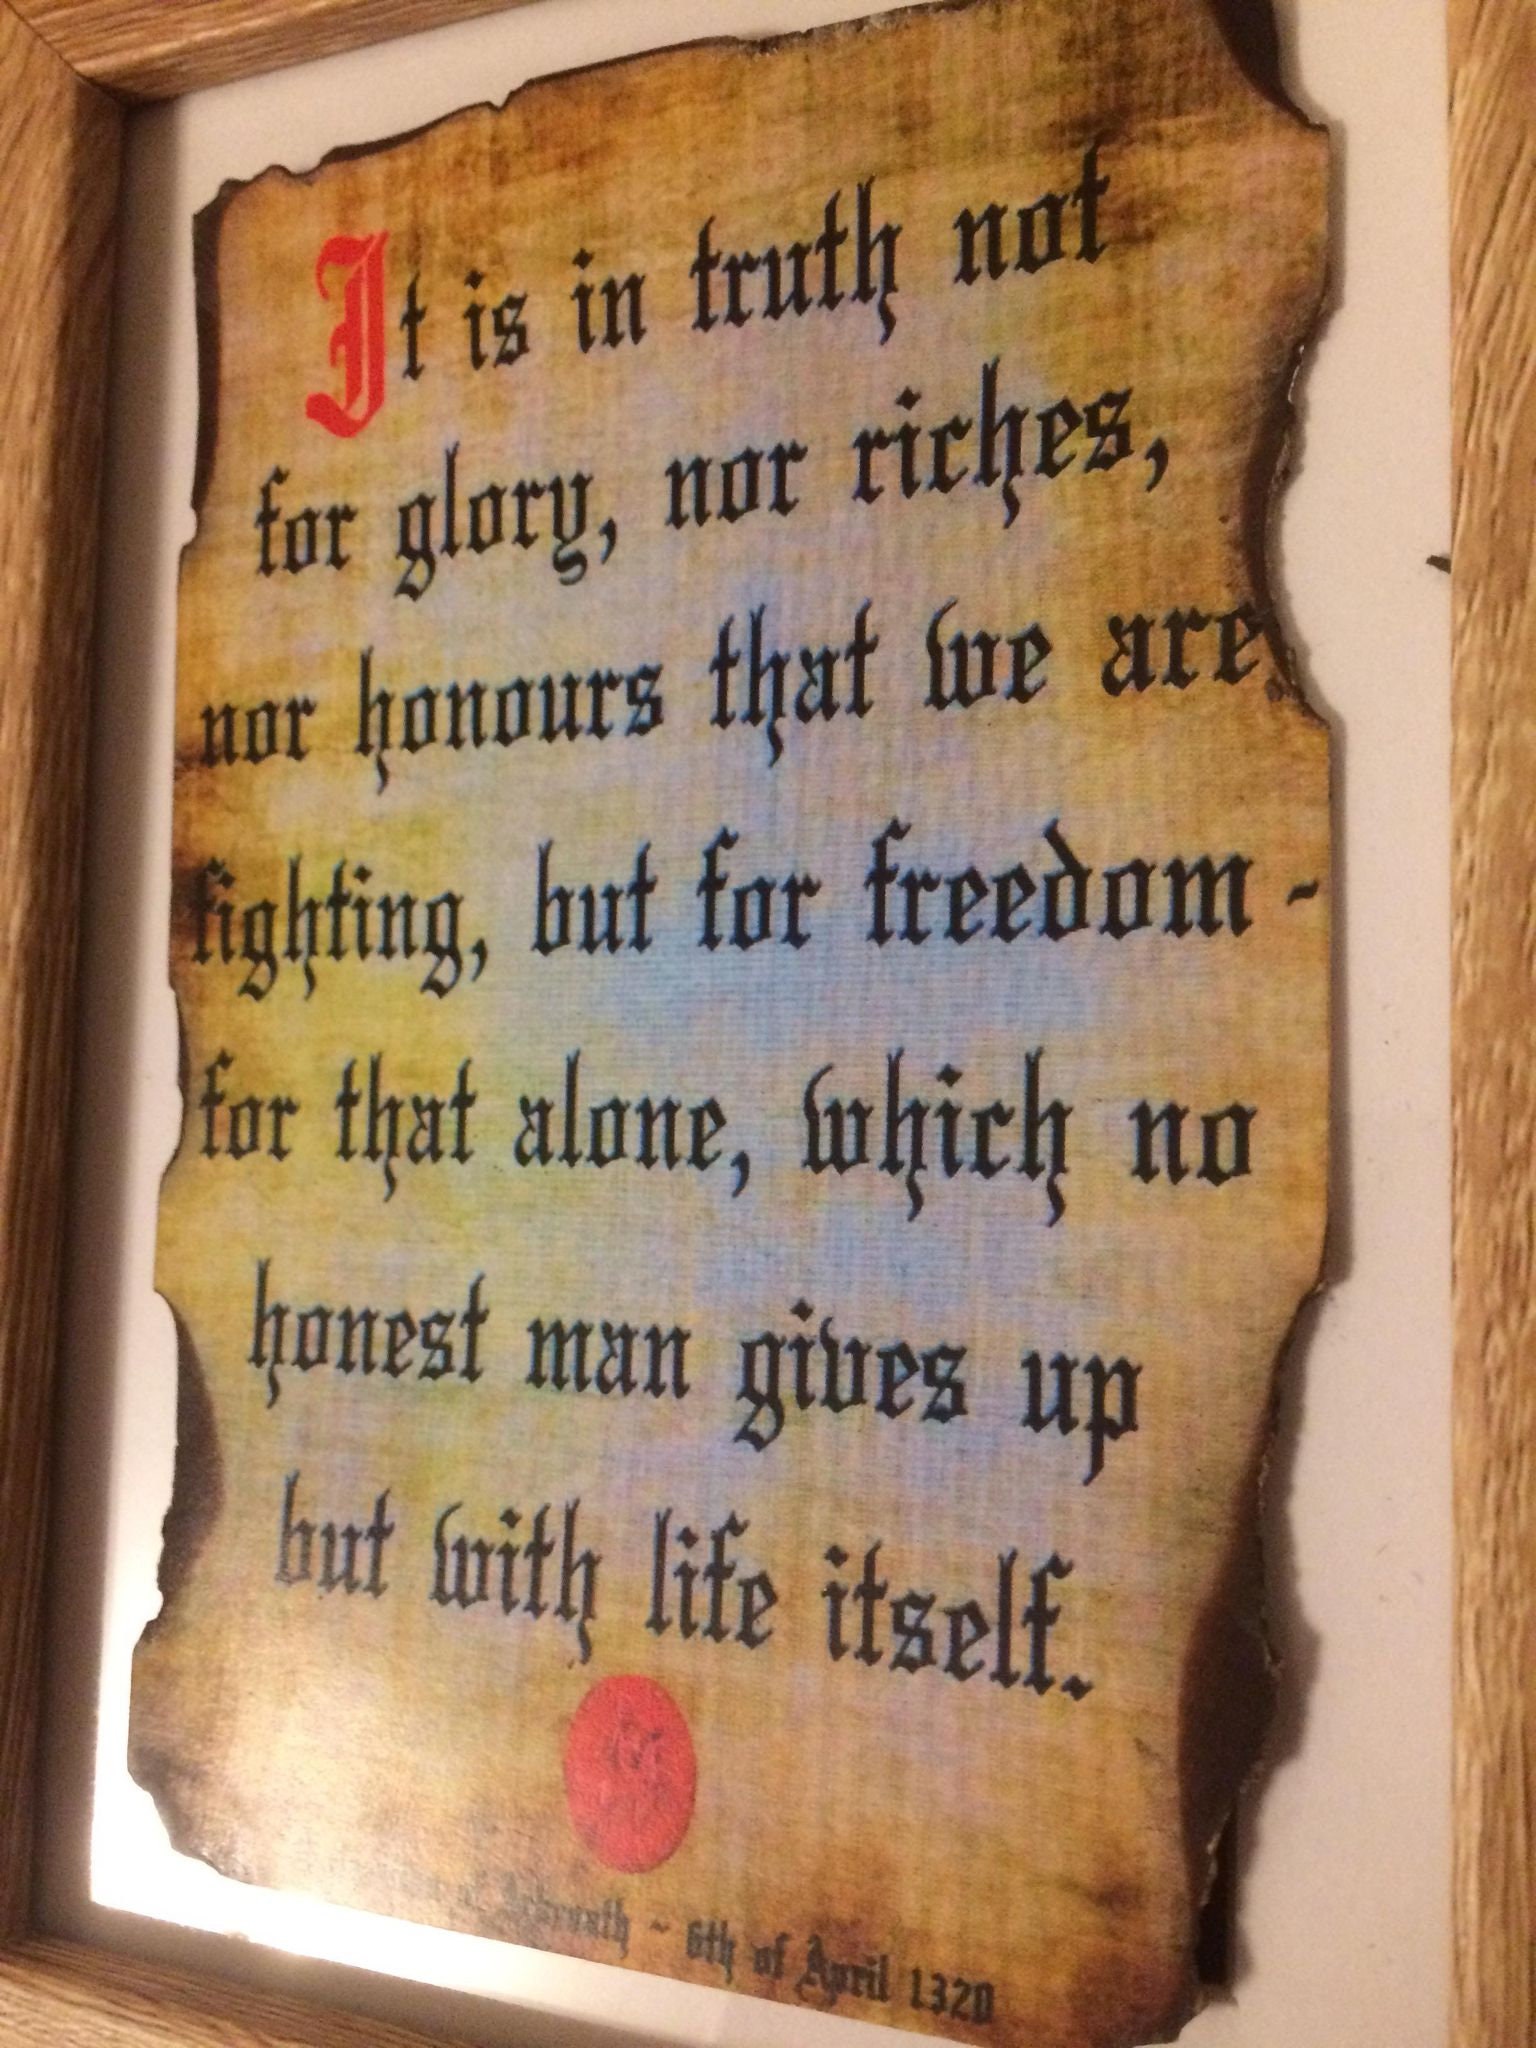 It is in truth not
for glory, nor riches,
nor honours that we are
fighting, but for freedom -
for that alone, which no
honest man gives up
but with life itself.
of Arbroath ~ 6th of April 1320